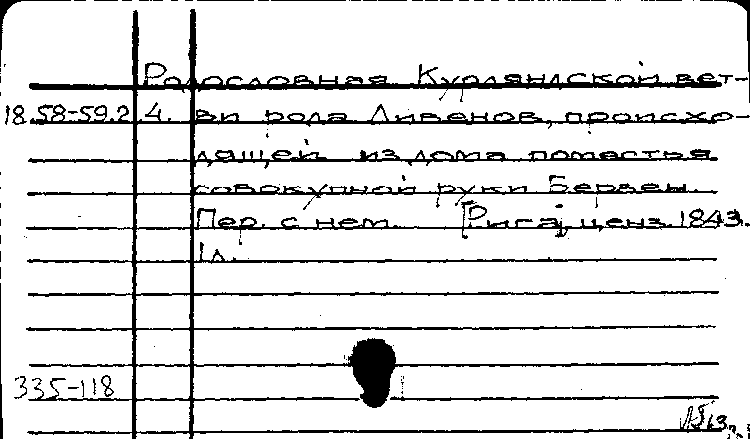 Родословная Курляндской вет-
18.58-59.2 4. ви рода Ливенов, происхо-
дящей из дома поместья
совокупной руки Берзен.
Пер. с нем. [Рига], ценз. 1843.
1 л.
335-118